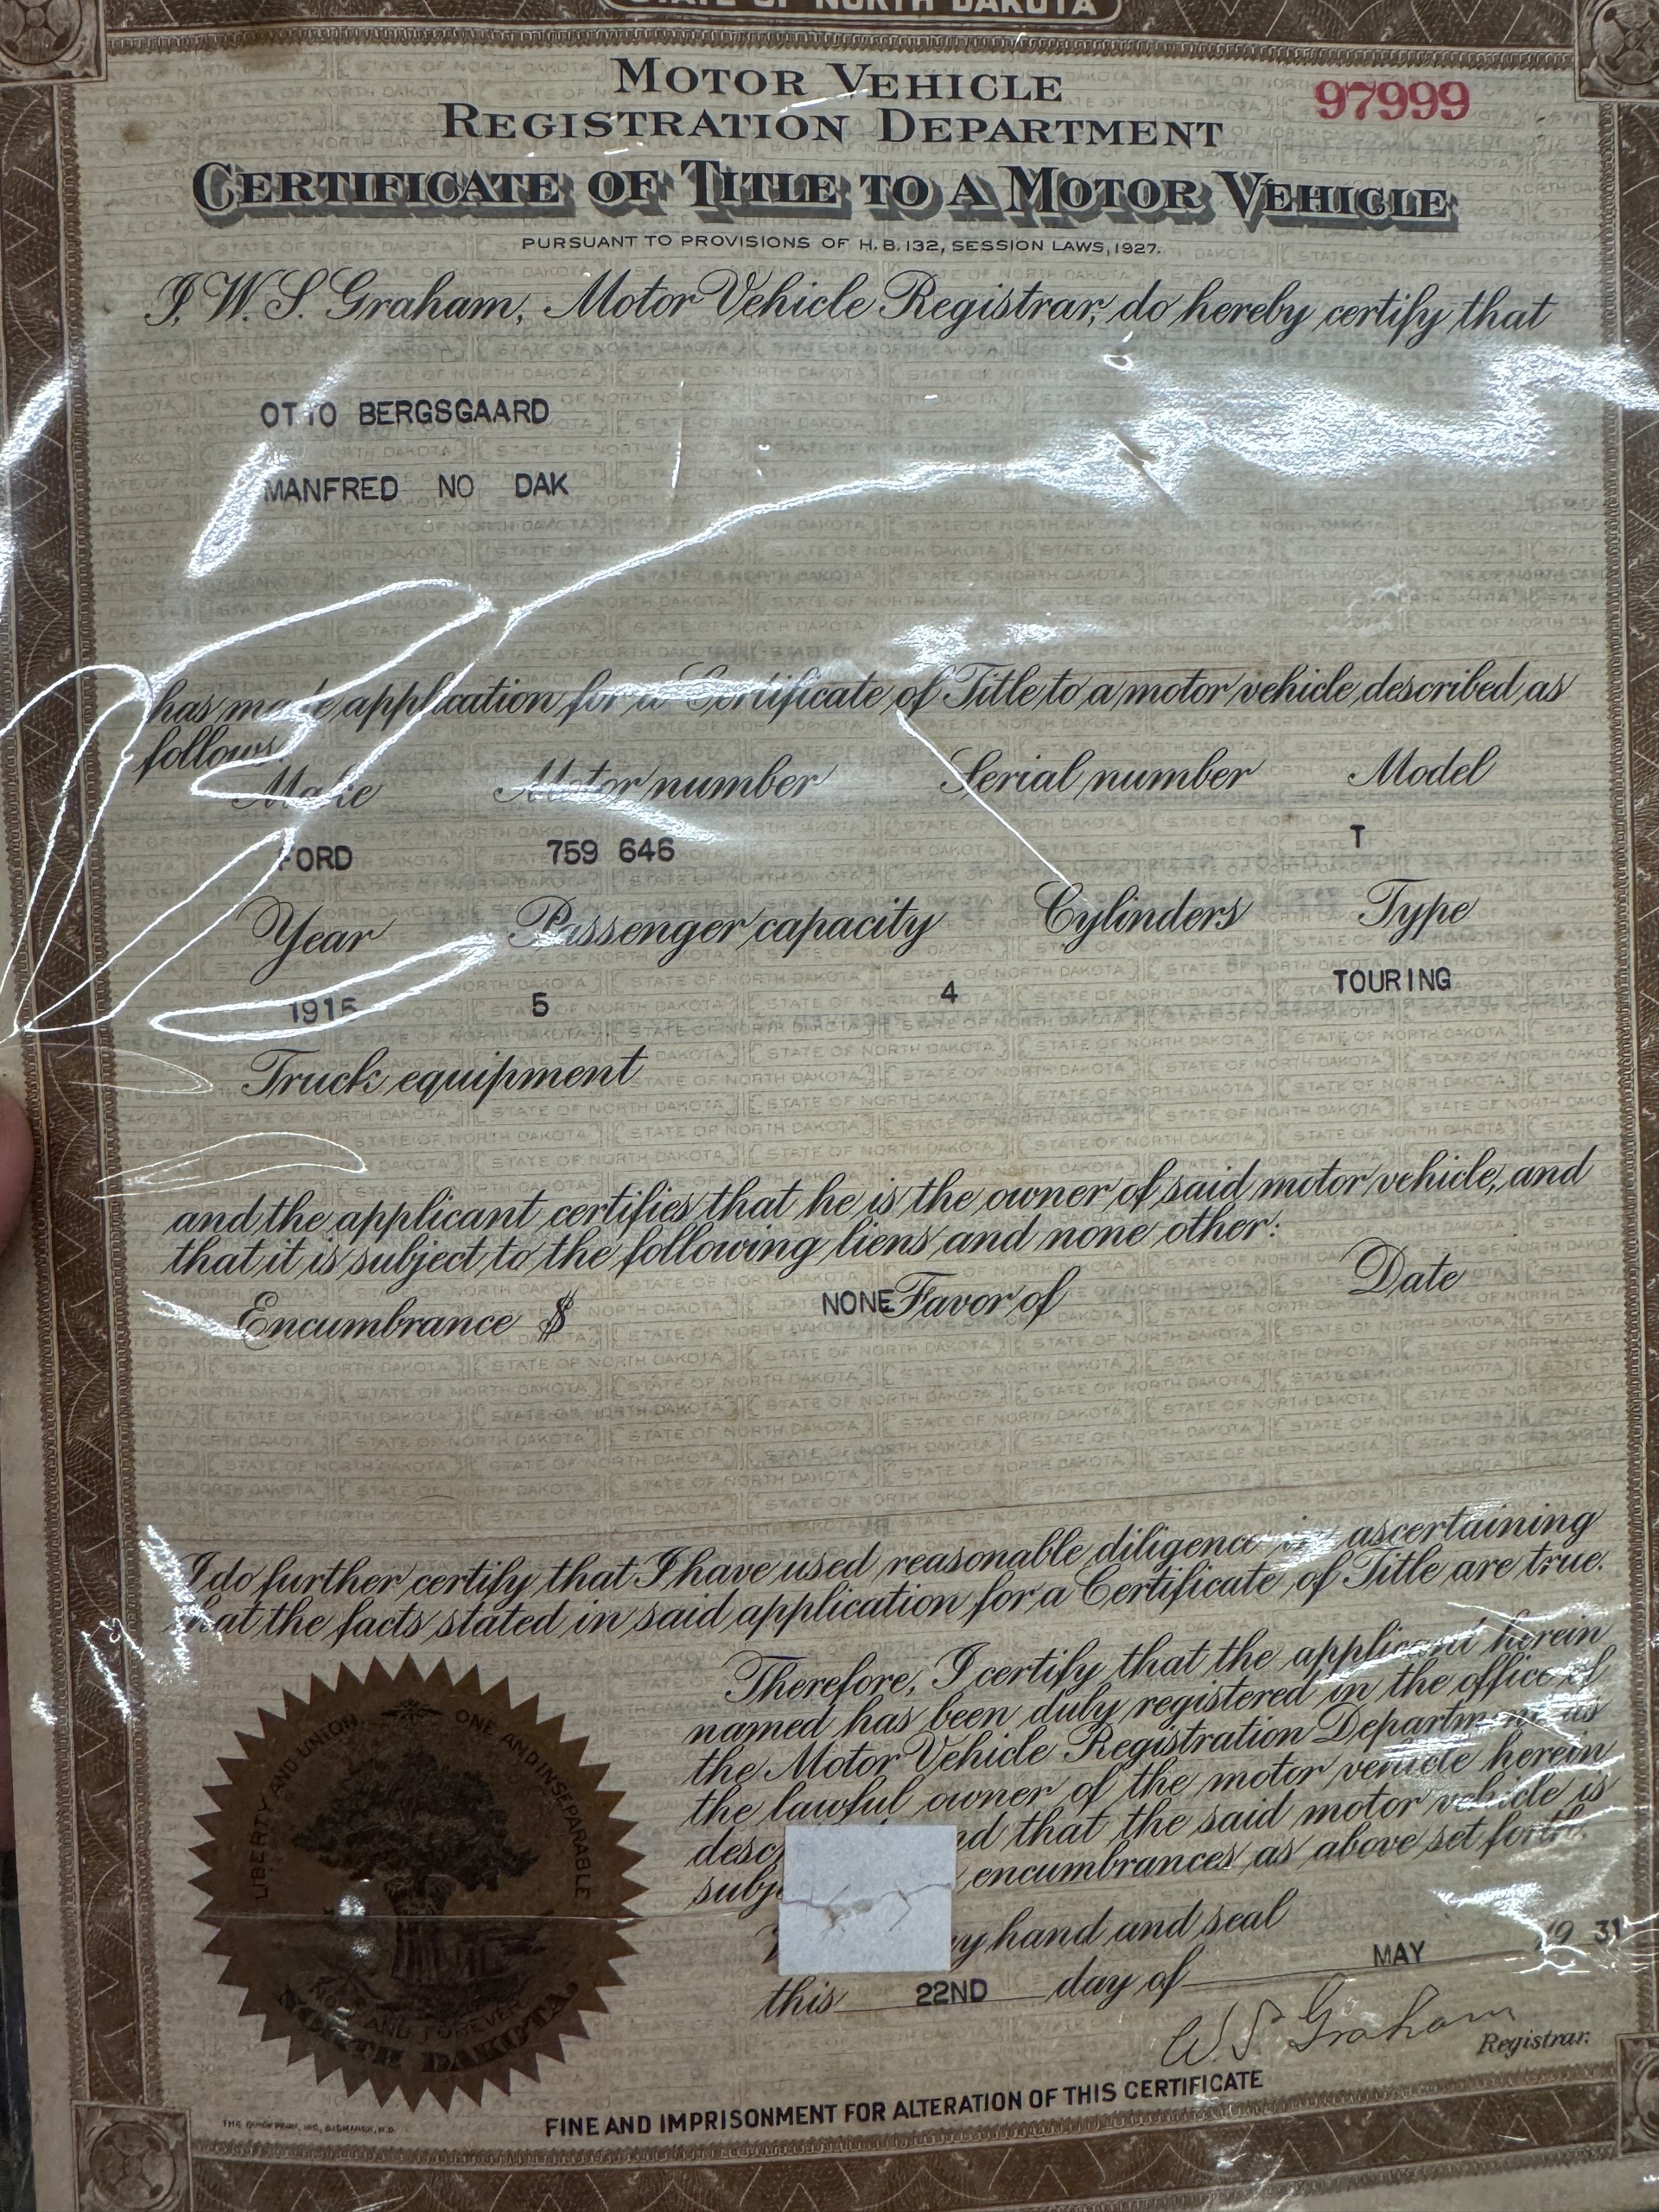 STATE OF NORTH DAKOTA
MOTOR VEHICLE
97999
REGISTRATION DEPARTMENT
CERTIFICATE OF TITLE TO A MOTOR VEHICLE
PURSUANT TO PROVISIONS OF H. B. 132, SESSION LAWS, 1927.
I, W. S. Graham, Motor Vehicle Registrar, do hereby certify that
OTTO BERGSGAARD
MANFRED NO DAK
has made application for a Certificate of Title to a motor vehicle described as
follows
Make Motor number Serial number Model
FORD 759 646 T
Year Passenger capacity Cylinders Type
1915 5 4 TOURING
Truck equipment
and the applicant certifies that he is the owner of said motor vehicle, and
that it is subject to the following liens and none other:
Encumbrance $ NONE Favor of Date
I do further certify that I have used reasonable diligence in ascertaining
that the facts stated in said application for a Certificate of Title are true.
Therefore, I certify that the applicant herein
named has been duly registered in the office of
the Motor Vehicle Registration Department as
the lawful owner of the motor vehicle herein
desc nd that the said motor vehicle is
subje encumbrances as above set forth.
y hand and seal
this 22ND day of MAY 19 31
W. S. Graham
Registrar.
LIBERTY AND UNION ONE AND INSEPARABLE
NOW AND FOREVER
NORTH DAKOTA.
FINE AND IMPRISONMENT FOR ALTERATION OF THIS CERTIFICATE
THE QUICK PRINT, INC., BISMARCK, N.D.